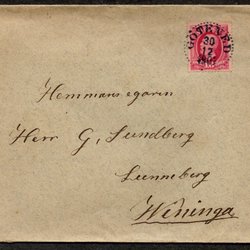 GÖTENED
30
12
Hemmansegaren
Herr G. Sundberg
Lunneberg
Weninga